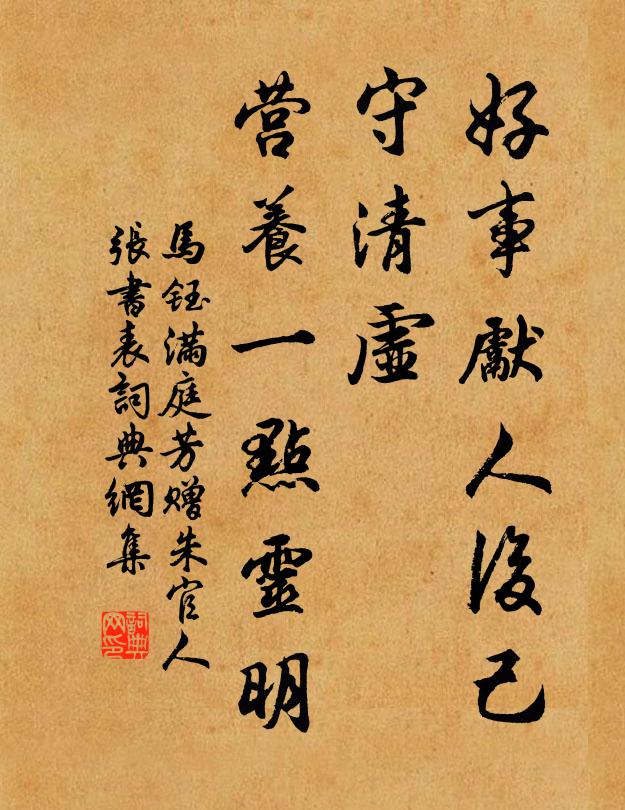 好事獻人後己
守清虛
营養一點靈明
馬鈺满庭芳赠朱官人
張書表詞典網集
詞典网印